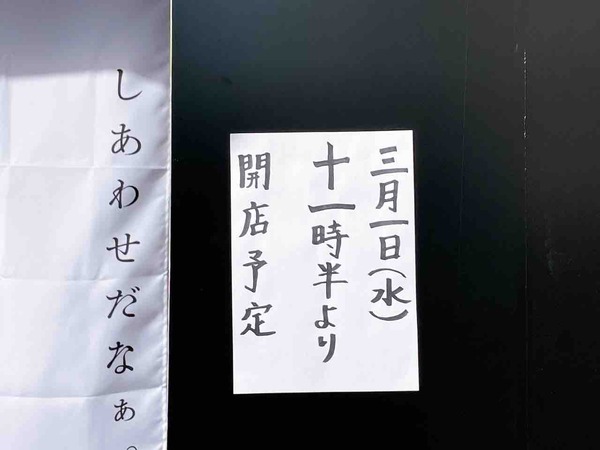 三月一日(水)
十一時半より
開店予定
しあわせだなぁ。